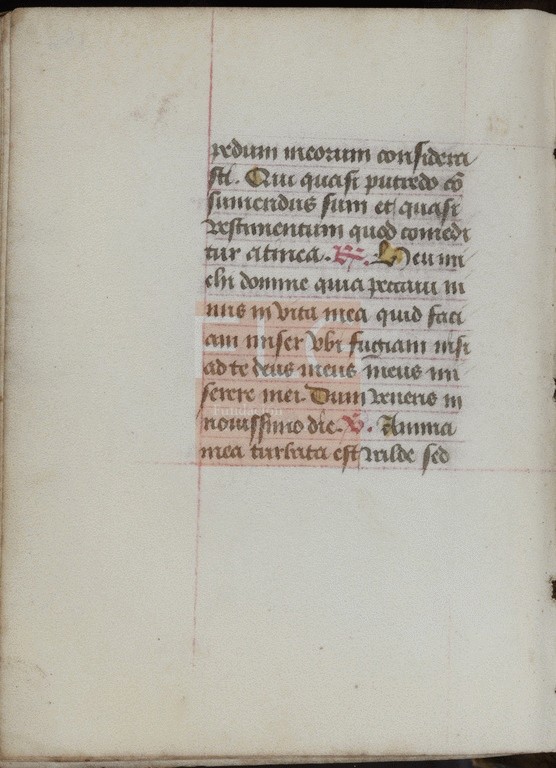 pedum meorum considera
sti. Qui quasi putredo cō
sumendus sum et quasi
vestimentum quod comedi
tur a tinea. R. Heu mi
chi domine quia peccaui ni
mis in vita mea quid faci
am miser vbi fugiam nisi
ad te deus meus meus mi
serere mei. Dum veneris in
nouissimo die. V. Anima
mea turbata est valde sed